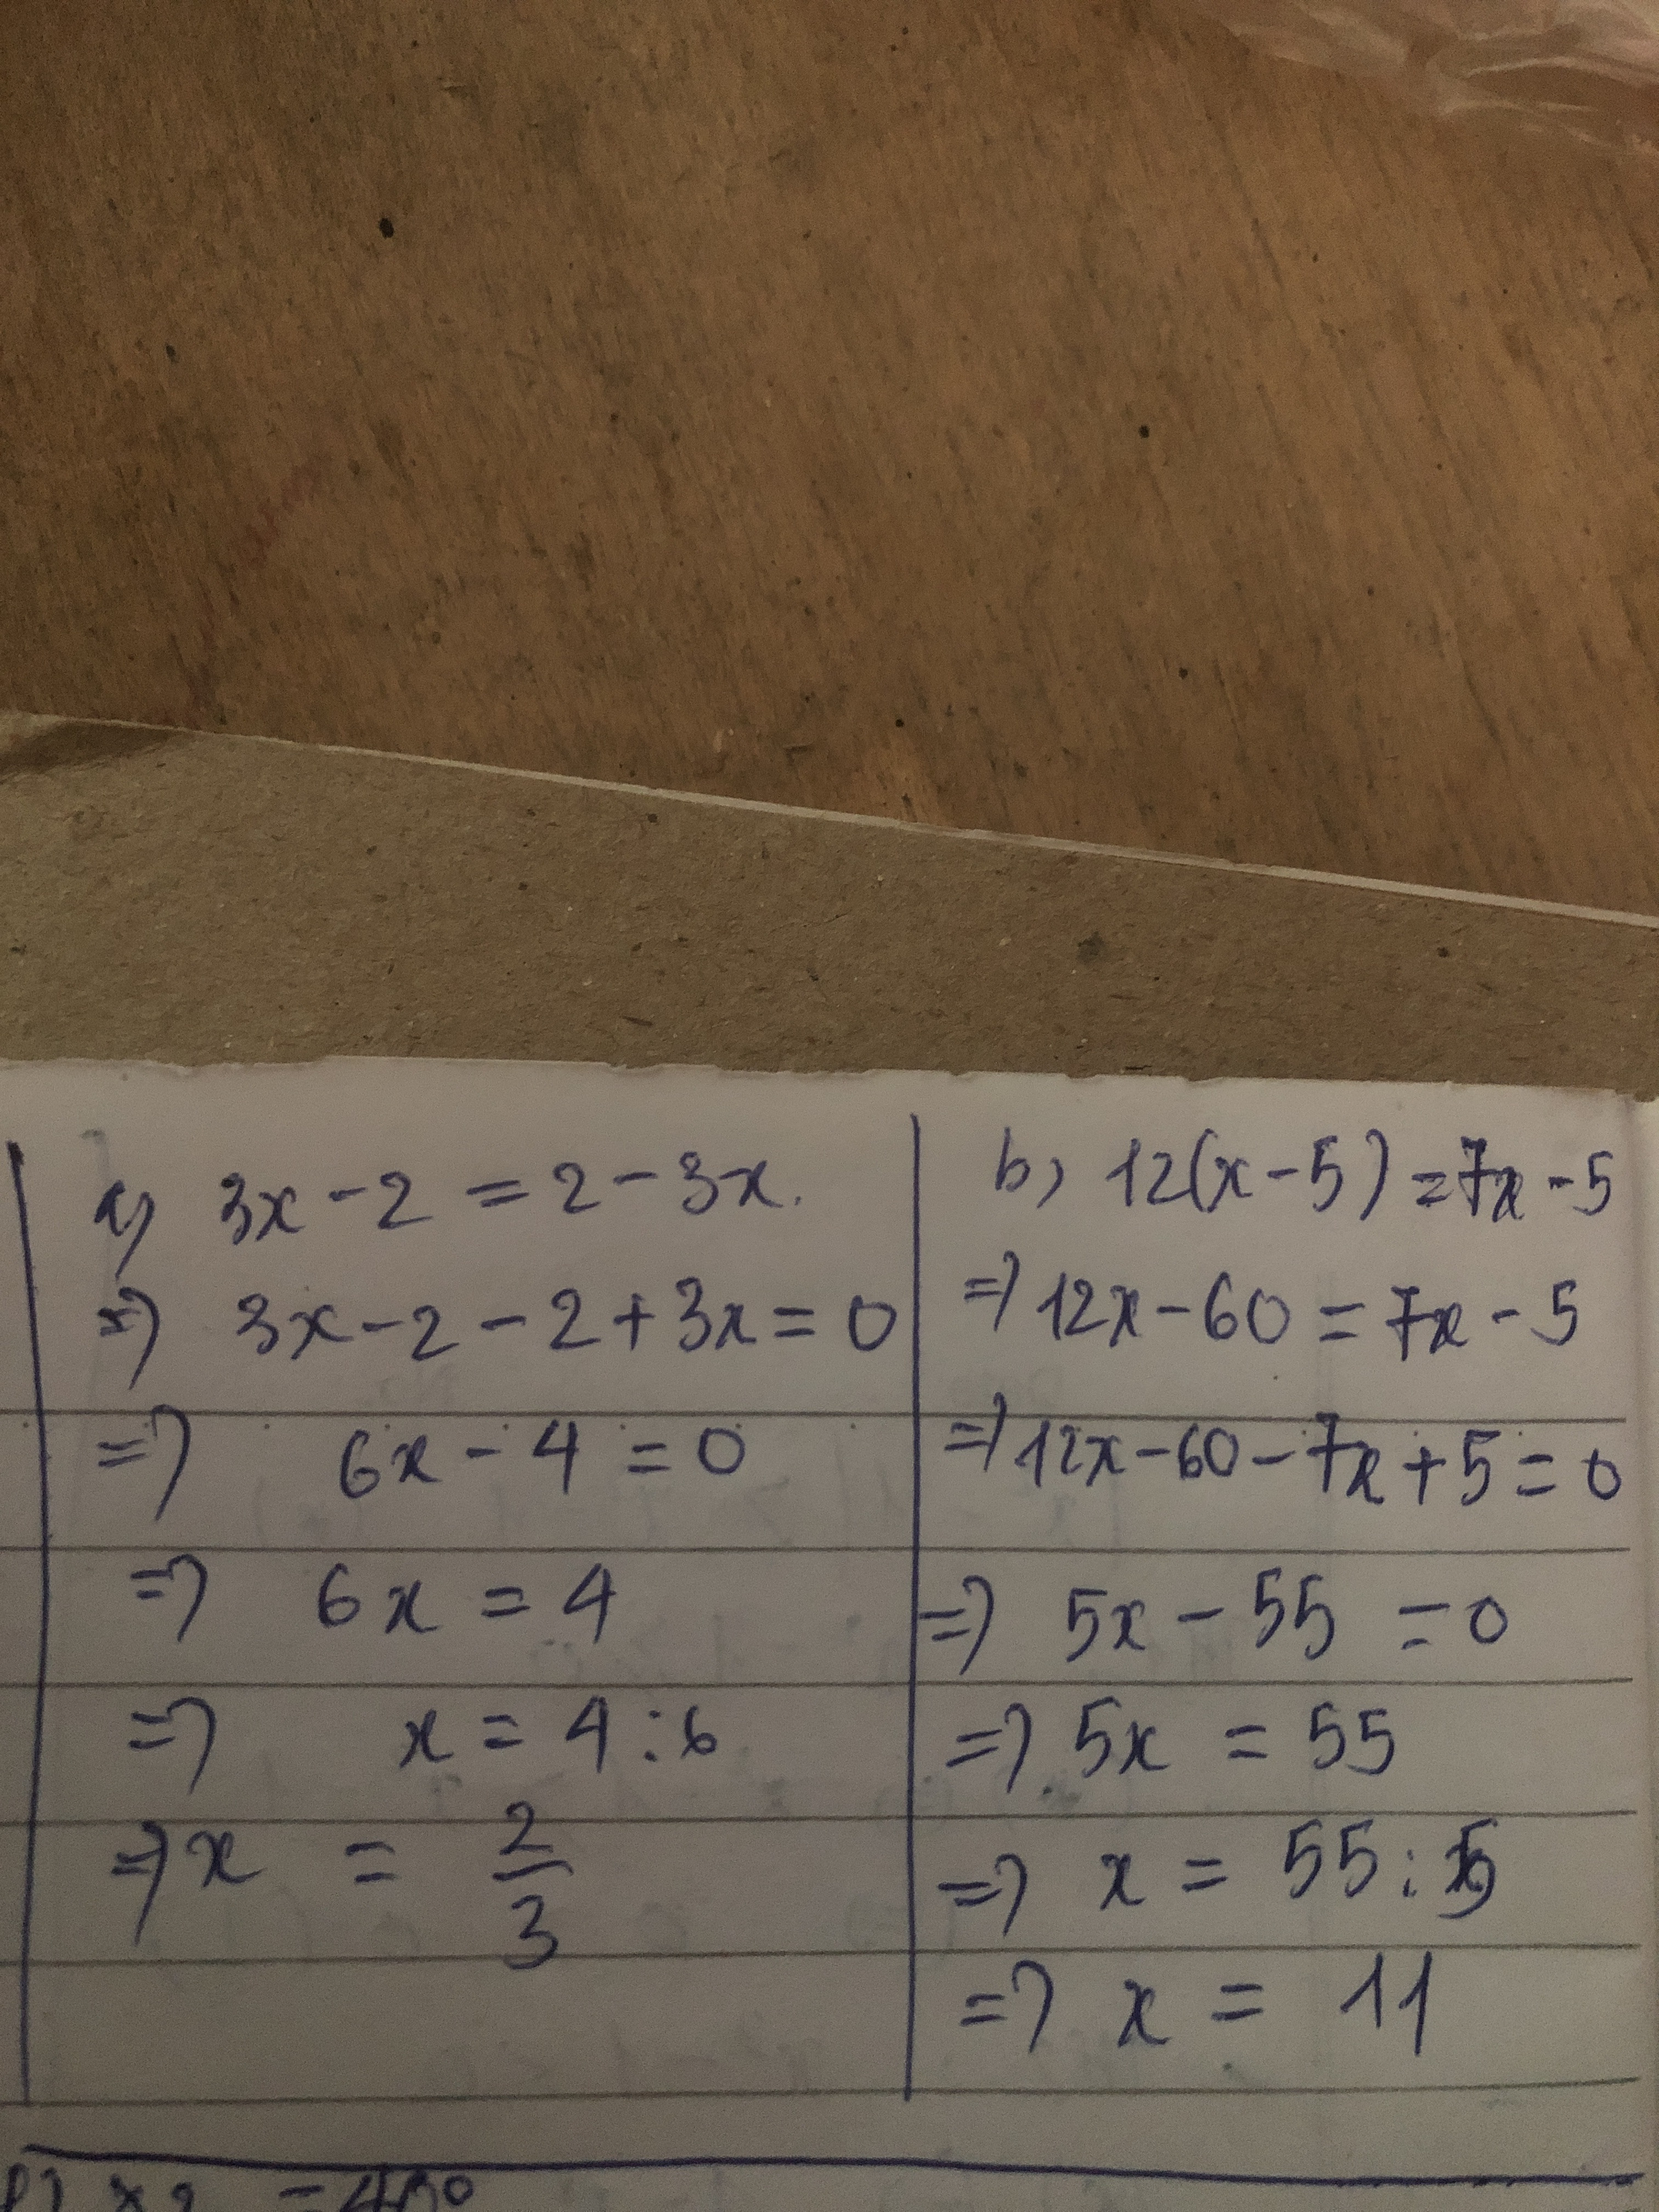 a) 3x - 2 = 2 - 3x.
=> 3x - 2 - 2 + 3x = 0
=> 6x - 4 = 0
=> 6x = 4
=> x = 4 : 6
=> x = 2/3
b) 12(x - 5) = 7x - 5
=> 12x - 60 = 7x - 5
=> 12x - 60 - 7x + 5 = 0
=> 5x - 55 = 0
=> 5x = 55
=> x = 55 : 5
=> x = 11